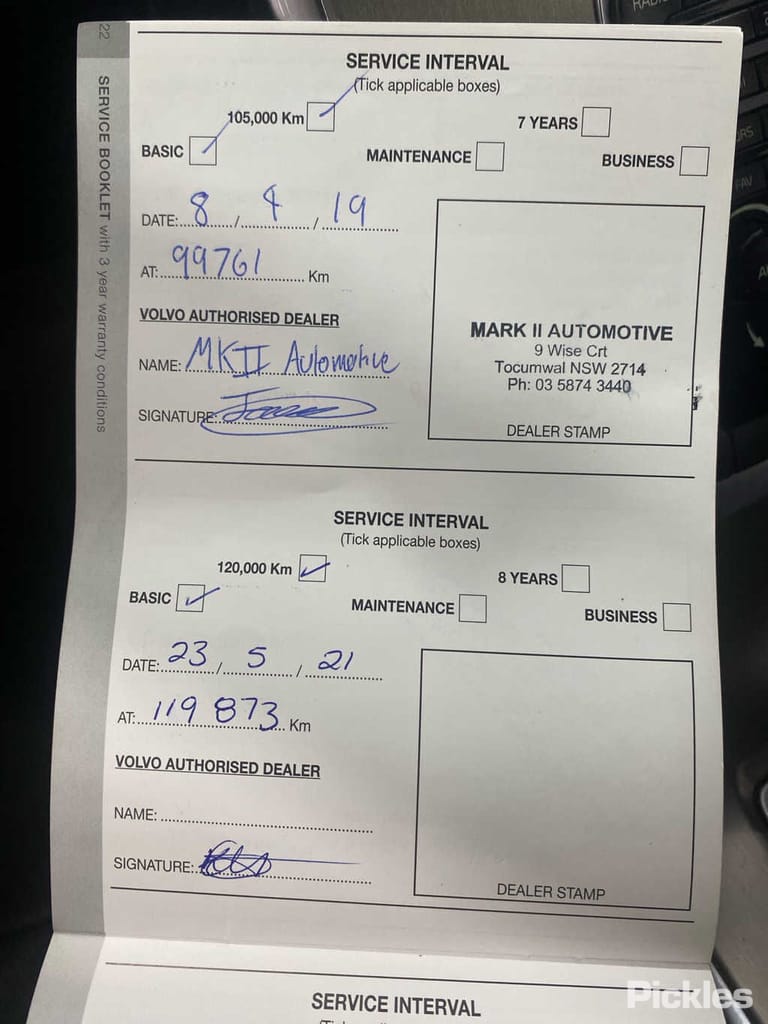 22
SERVICE BOOKLET with 3 year warranty conditions
SERVICE INTERVAL
(Tick applicable boxes)
105,000 Km
7 YEARS
BASIC
MAINTENANCE
BUSINESS
DATE: 8 / 4 / 19
AT: 99761 Km
VOLVO AUTHORISED DEALER
NAME: MKII Automotive
SIGNATURE:
MARK II AUTOMOTIVE
9 Wise Crt
Tocumwal NSW 2714
Ph: 03 5874 3440
DEALER STAMP
SERVICE INTERVAL
(Tick applicable boxes)
120,000 Km
8 YEARS
BASIC
MAINTENANCE
BUSINESS
DATE: 23 / 5 / 21
AT: 119 873 Km
VOLVO AUTHORISED DEALER
NAME:
SIGNATURE:
DEALER STAMP
SERVICE INTERVAL
Pickles